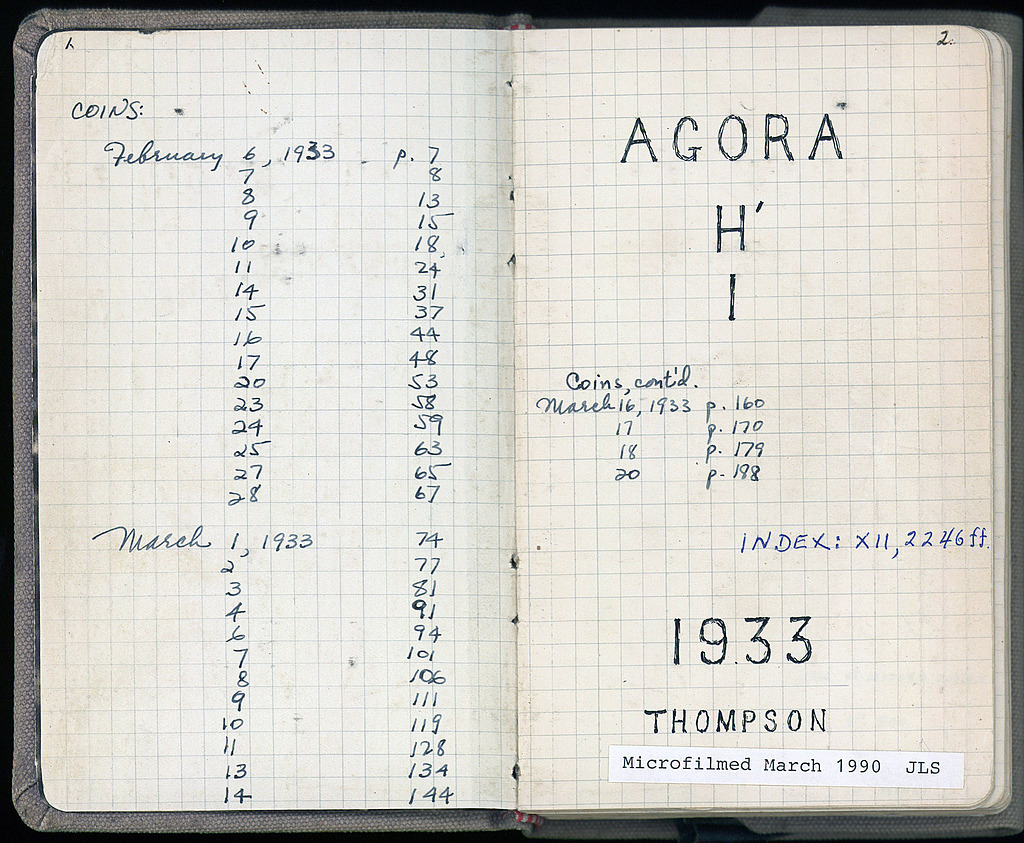 1.
COINS:
February 6, 1933 p. 7
7 8
8 13
9 15
10 18
11 24
14 31
15 37
16 44
17 48
20 53
23 58
24 59
25 63
27 65
28 67
March 1, 1933 74
2 77
3 81
4 91
6 94
7 101
8 106
9 111
10 119
11 128
13 134
14 144
2.
AGORA
H'
I
Coins, cont'd.
March 16, 1933 p. 160
17 p. 170
18 p. 179
20 p. 188
INDEX: XII, 2246ff.
1933
THOMPSON
Microfilmed March 1990 JLS